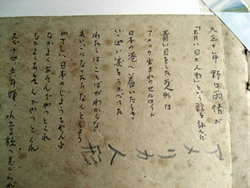 大正十年 野口雨情が
「青い目の人形」という詩を詠んだ
青い目をしたお人形は
アメリカ生まれのセルロイド
日本の港へ着いたとき
いっぱい涙をうかべてた
わたしはことばがわからない
まいごになったらなんとしよう
やさしい日本のじょうちゃんよ
なかよくあそんでやっとくれ
なかよくあそんでやっとくれ
アメリカ人形